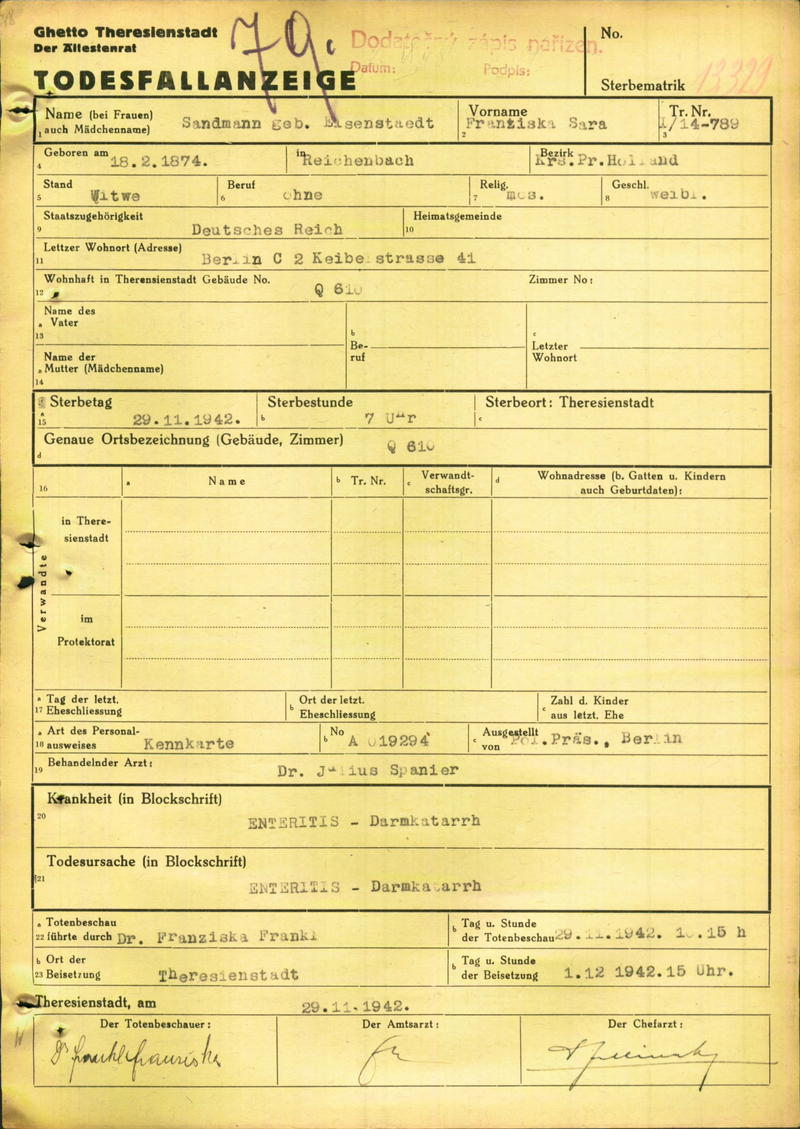 Ghetto Theresienstadt
Der Ältestenrat
79.
Dodatečný zápis nařízen.
Datum:
Podpis:
No.
TODESFALLANZEIGE
Sterbematrik 13329
Name (bei Frauen)
1 auch Mädchenname)
Sandmann geb. Eisenstaedt
Vorname
2 Franziska Sara
Tr. Nr.
3 I/14-789
4 Geboren am 18.2.1874.
in Reichenbach
Bezirk Krs.Pr.Holland
5 Stand Witwe
6 Beruf ohne
7 Relig. mos.
8 Geschl. weibl.
9 Staatszugehörigkeit Deutsches Reich
10 Heimatsgemeinde
11 Lettzer Wohnort (Adresse) Berlin C 2 Keibelstrasse 41
12 Wohnhaft in Therensienstadt Gebäude No. Q 610
Zimmer No:
Name des
a Vater
13
b
Be-
ruf
c
Letzter
Wohnort
Name der
a Mutter (Mädchenname)
14
a Sterbetag
15 29.11.1942.
b Sterbestunde 7 Uhr
c Sterbeort: Theresienstadt
d Genaue Ortsbezeichnung (Gebäude, Zimmer) Q 610
16
a Name
b Tr. Nr.
c Verwandt-
schaftsgr.
d Wohnadresse (b. Gatten u. Kindern
auch Geburtdaten):
Verwandte
in There-
sienstadt
im
Protektorat
a Tag der letzt.
17 Eheschliessung
b Ort der letzt.
Eheschliessung
c Zahl d. Kinder
aus letzt. Ehe
a Art des Personal-
18 ausweises Kennkarte
b No A 019294
c Ausgestellt
von Pol.Präs., Berlin
19 Behandelnder Arzt: Dr. Julius Spanier
Krankheit (in Blockschrift)
20
ENTERITIS - Darmkatarrh
Todesursache (in Blockschrift)
21
ENTERITIS - Darmkatarrh
a Totenbeschau
22 führte durch Dr. Franziska Frankl
b Tag u. Stunde
der Totenbeschau 29.11.1942. 15 h
b Ort der
23 Beisetzung Theresienstadt
b Tag u. Stunde
der Beisetzung 1.12 1942.15 Uhr.
Theresienstadt, am 29.11.1942.
Der Totenbeschauer:
Der Amtsarzt:
Der Chefarzt:
Dr Frankl Franziska